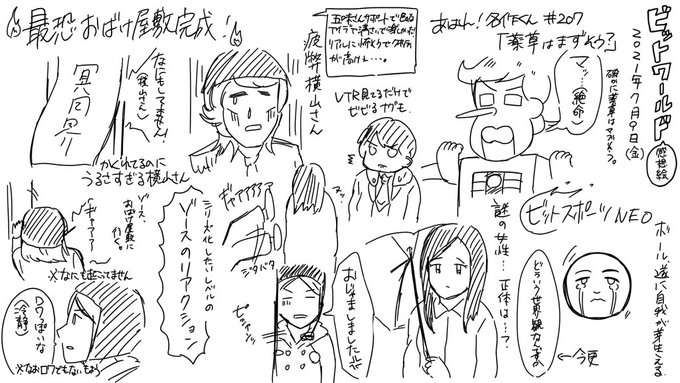 ビットワールド
感想絵
2021年7月9日(金)
あはれ!名作くん #207
「薬草はまずそう?」
マッ…(絶命)
確かに薬草はマズそう。
ビットスポーツNEO
ボール、遂に自我が芽生える
どういう世界観なんですの
←今更
謎の女性…正体は…?
おじゃましましたぁ
VTR見てるだけで
ビビるナゲも
疲弊横山さん
最恐おばけ屋敷完成!
なにもしてません!
(横山さん)
冥同界
かくれてるのに
うるさすぎる横山さん
ギャアアアアア
ジタバタ
シリーズ化したいレベルの
ゾースのリアクション
ピシャッ
ゾース、
おばけ屋敷に
行く。
ギャーアアー
※なにも起こってません
ロウっぽいな
(冷静)
※なおロウでもないもよう